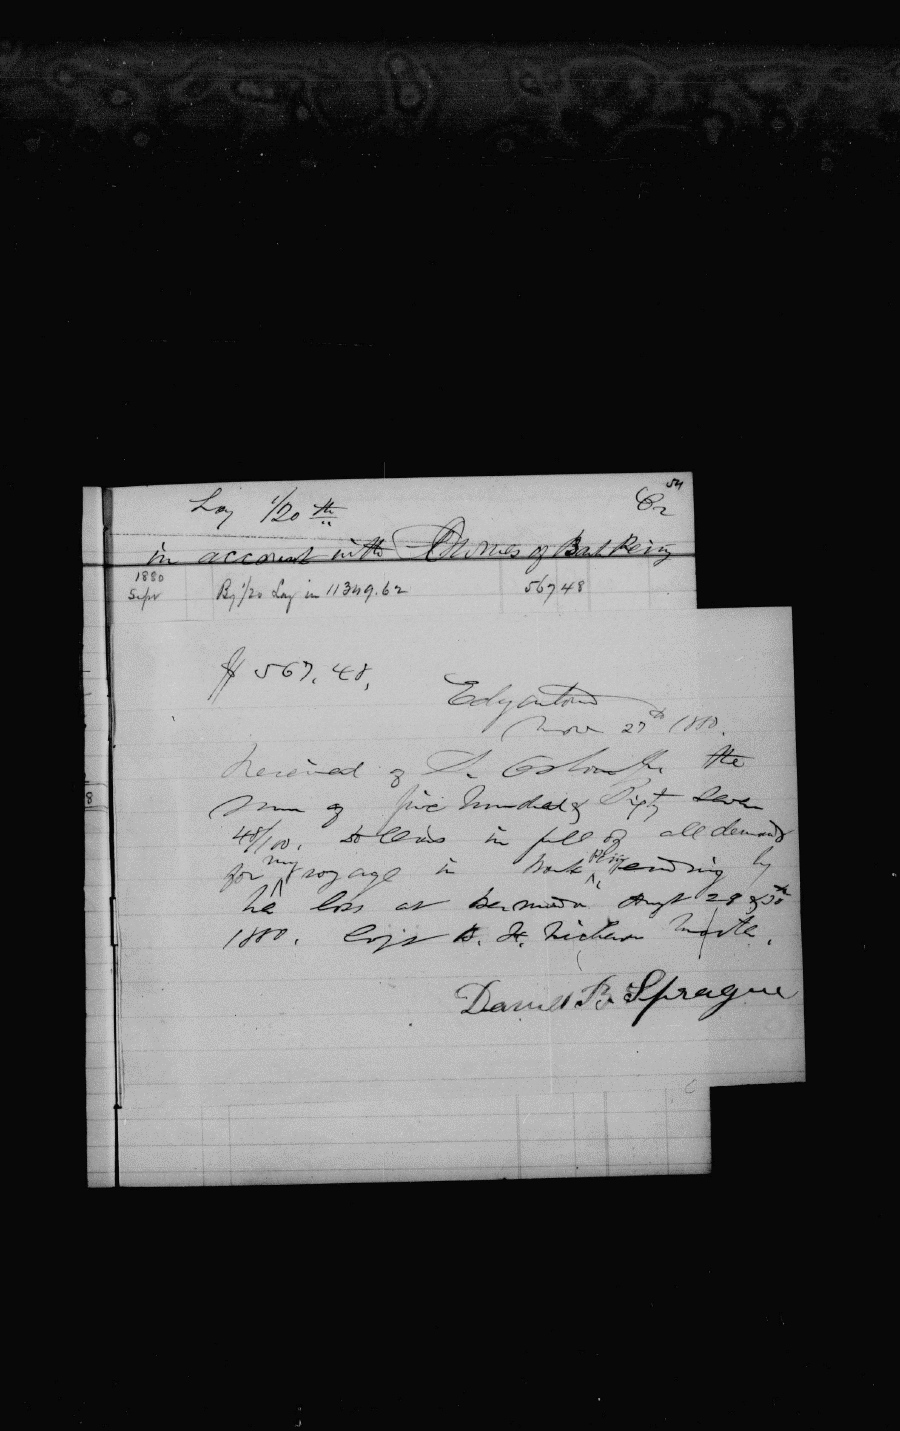 54
Lay 1/20 th Cr
in account with Owners of Bark Perry
1880
Sepr By 1/20 Lay in 11349.62 567 48
8
$ 567.48.
Edgartown
Nov 27th 1880.
Received of Jr. the
sum of five hundred & Sixty Seven
48/100. Dollars in full of all demands
for my voyage in Bark Perry ending by
he loss at Bermuda Augt 28 &
1880. Capt Master.
Daniel B. Sprague